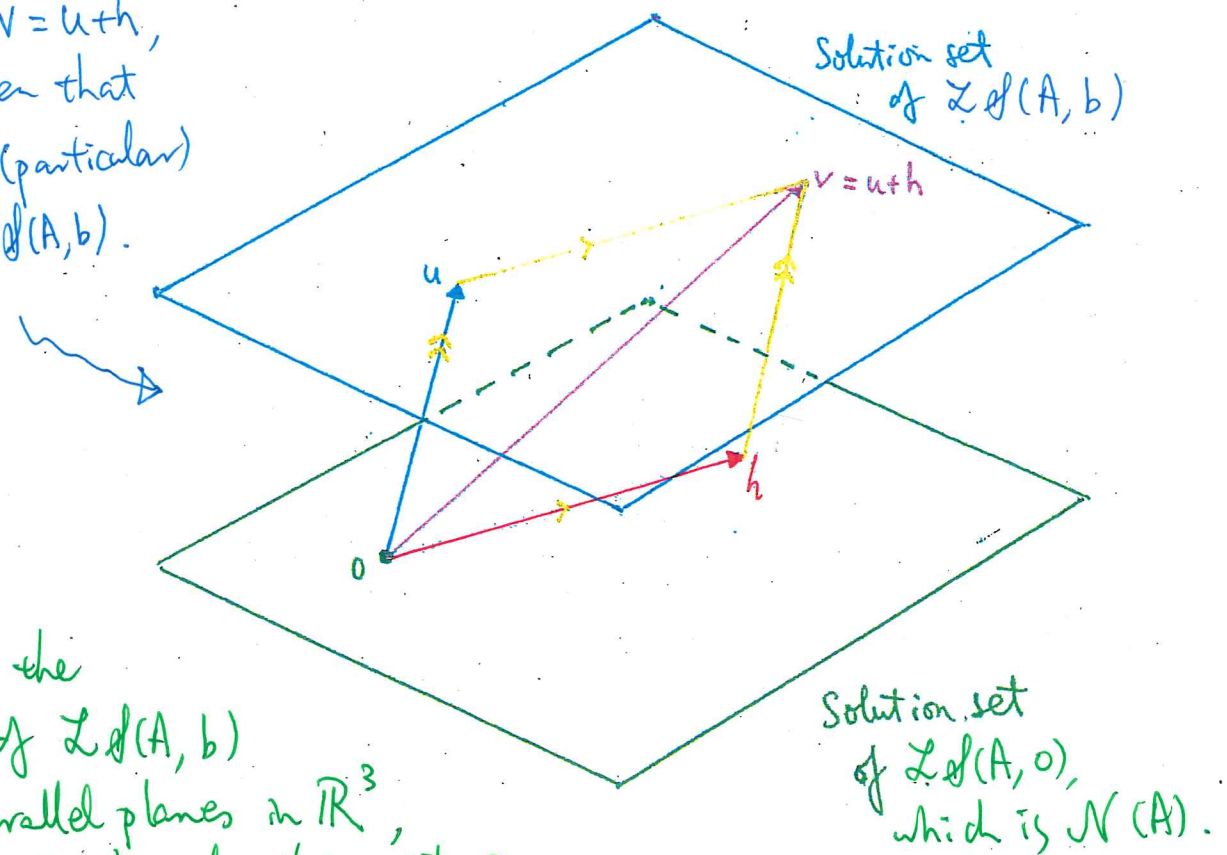 v = u+h,
en that
(particular)
S(A,b).
Solution set
of LS(A, b)
v = u+h
u
h
0
the
of LS(A, b)
rallel planes in ℝ³,
Solution set
of LS(A, 0),
which is N(A).